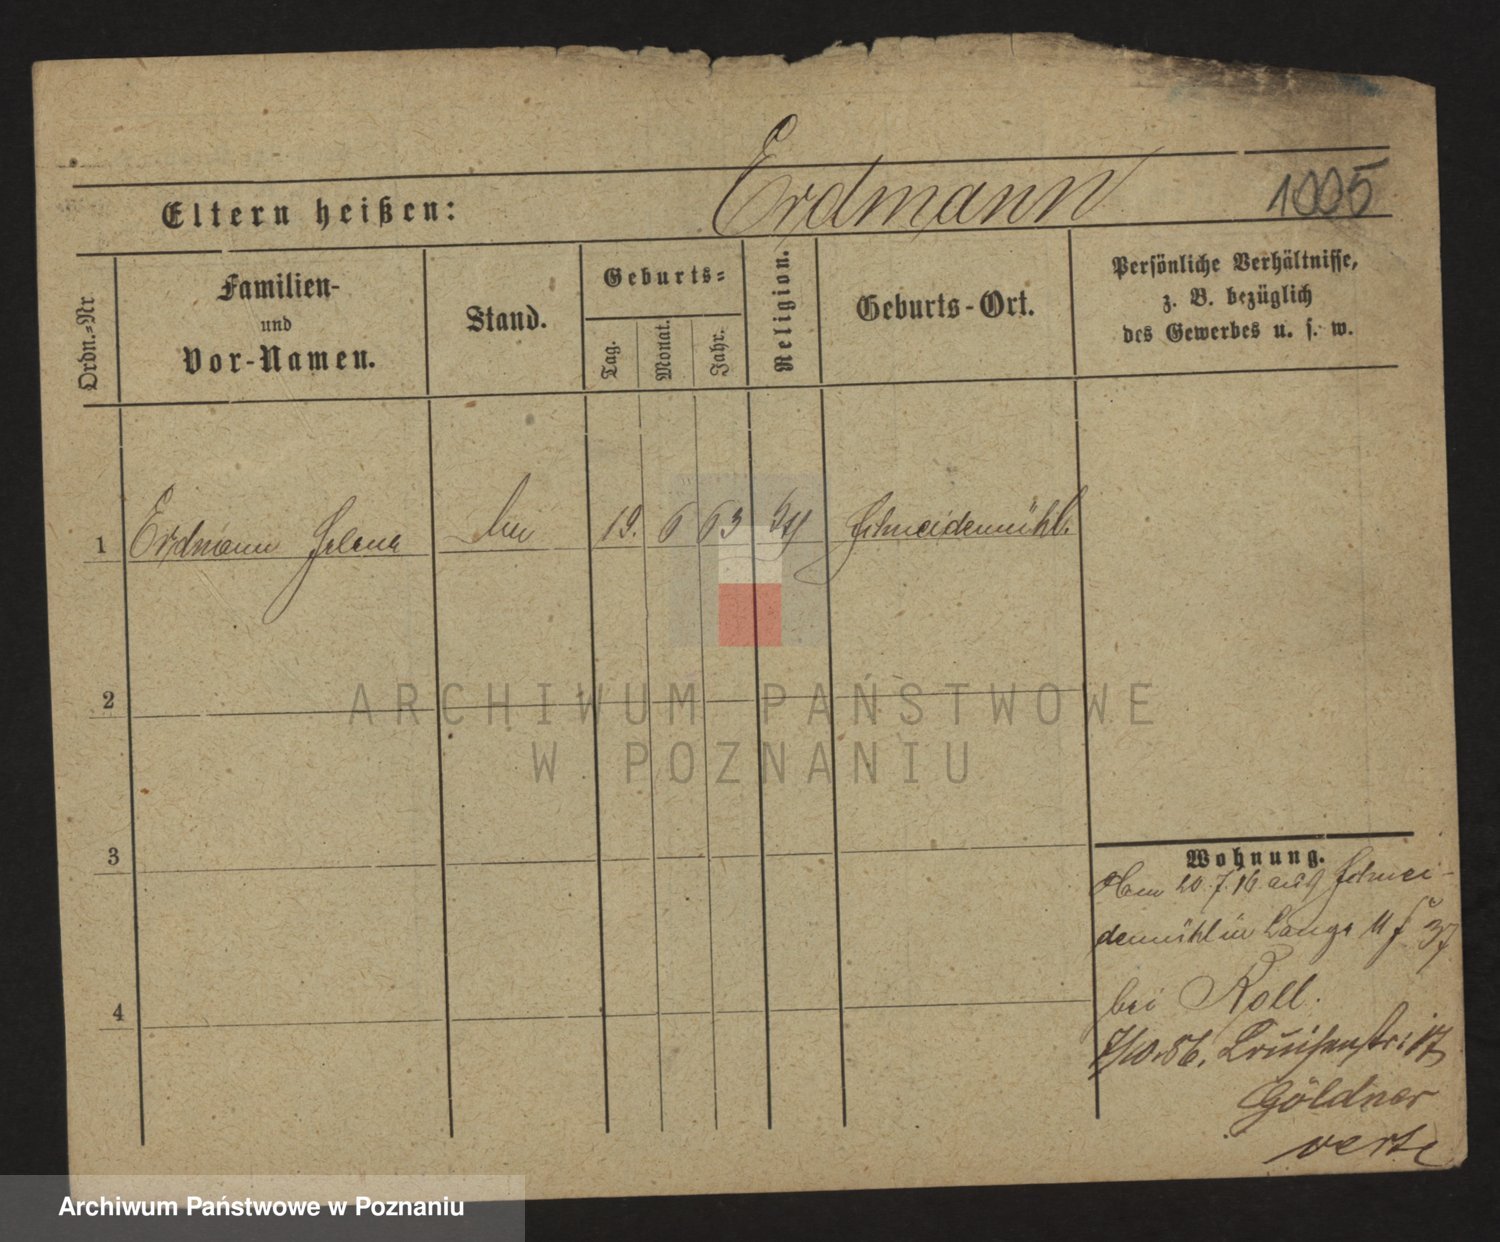 Erdmann
1005
Eltern heißen:
Ordn.=Nr
Familien-
und
Vor-Namen.
Stand.
Geburts=
Tag.
Monat.
Jahr.
Religion.
Geburts-Ort.
Persönliche Verhältnisse,
z. B. bezüglich
des Gewerbes u. s. w.
1 Erdmann Helene 19. 6 63 Schneidemühl.
2
3
4
ARCHIWUM PAŃSTWOWE
W POZNANIU
Wohnung.
20. 7. Schnei-
demühl
bei Roll.
Göldner
verte
Archiwum Państwowe w Poznaniu